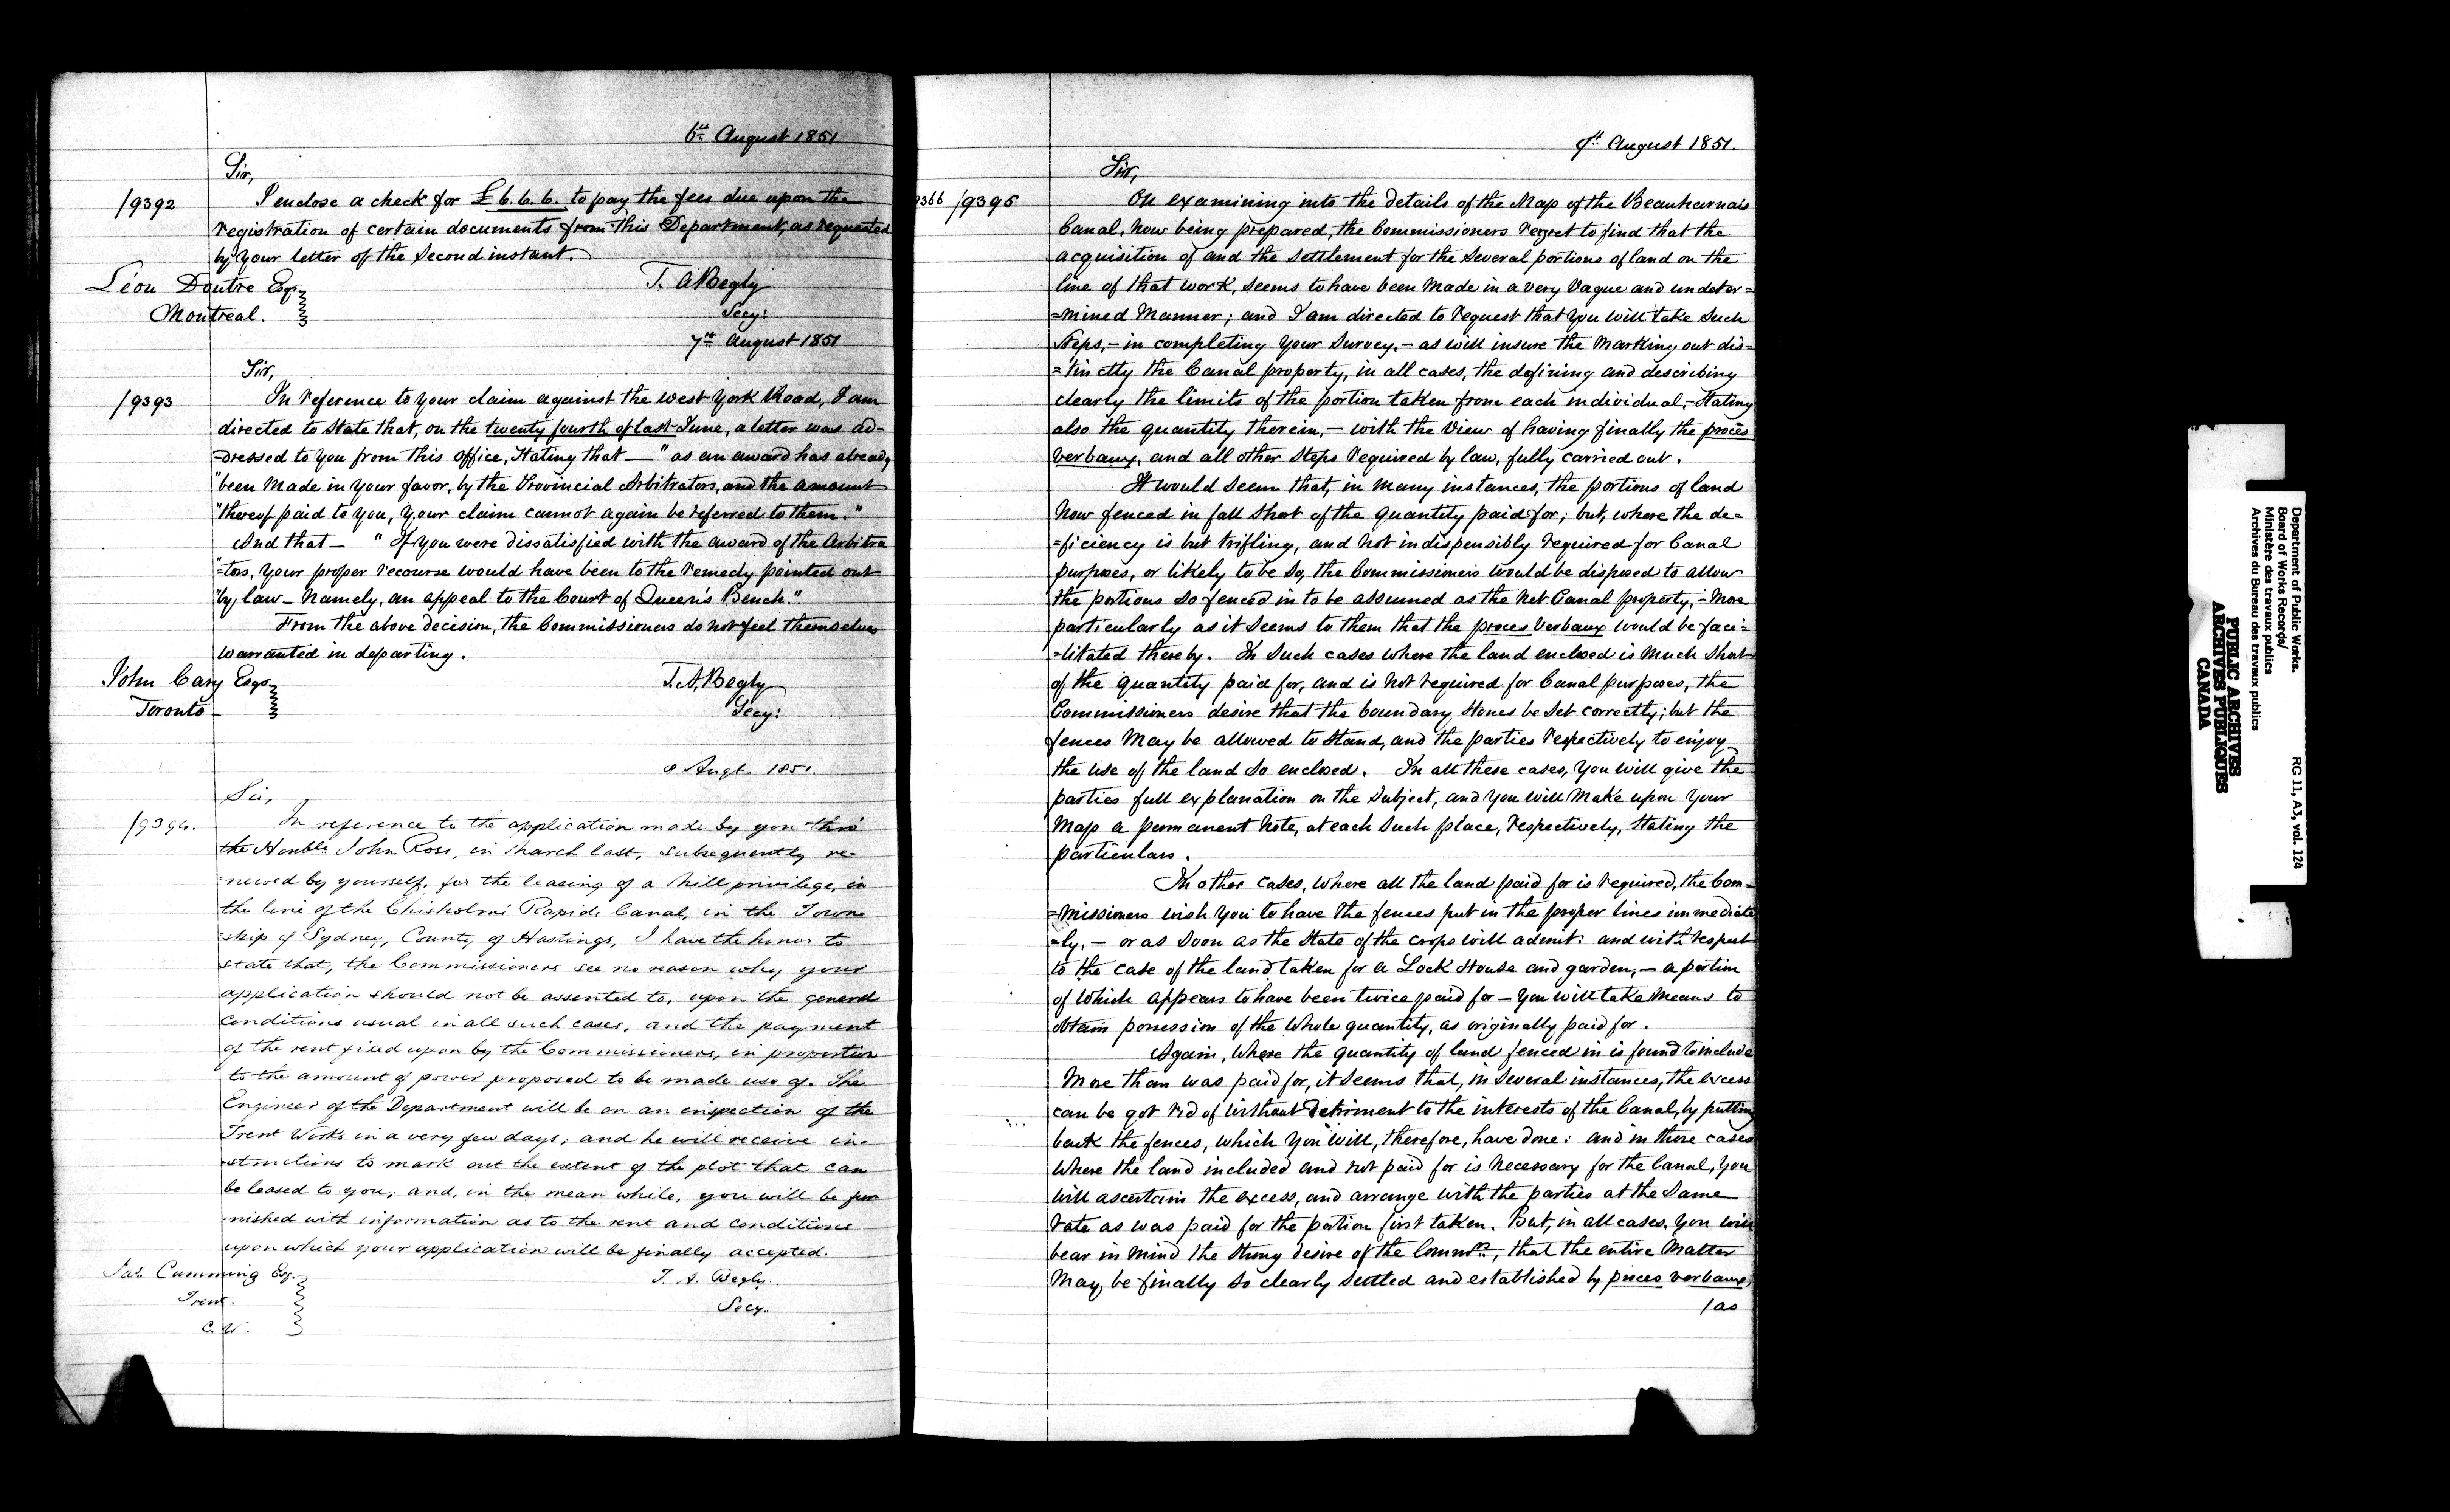 6th August 1851
Sir,
/9392 I enclose a check for £6.6.6. to pay the fees due upon the
registration of certain documents from this Department, as requested
by your letter of the second instant.
Léon Doutre Esqr. T. A. Begly
Montreal. Secy:
7th August 1851
Sir,
/9393 In reference to your claim against the west York Road, I am
directed to state that, on the twenty fourth of last June, a letter was ad-
=dressed to you from this office, stating that — "as an award has already
"been made in your favor, by the Provincial Arbitrators, and the amount
"thereof paid to you, your claim cannot again be referred to them."
And that — "If you were dissatisfied with the award of the Arbitra
"=tors, your proper recourse would have been to the remedy pointed out
"by law — namely, an appeal to the Court of Queen's Bench."
From the above decision, the Commissioners do not feel themselves
warranted in departing.
John Cary Esqr. T. A. Begly
Toronto — Secy:
8 Augt. 1851.
Sir,
/9394. In reference to the application made by you thro'
the Honble. John Ross, in March last, subsequently re-
=newed by yourself, for the leasing of a Mill privilege, in
the line of the Chisholms Rapids Canal, in the Town=
=ship of Sydney, County of Hastings, I have the honor to
state that, the Commissioners see no reason why your
application should not be assented to, upon the general
conditions usual in all such cases, and the payment
of the rent fixed upon by the Commissioners, in proportion
to the amount of power proposed to be made use of. The
Engineer of the Department will be on an inspection of the
Trent Works in a very few days; and he will receive in-
=structions to mark out the extent of the plot that can
be leased to you; and, in the mean while, you will be fur
=nished with information as to the rent and conditions
upon which your application will be finally accepted.
Jas. Cumming Esq. T. A. Begly.
Trent. Secy.
C. W.
9th August 1851.
Sir,
9366 /9395 On examining into the details of the Map of the Beauharnais
Canal, now being prepared, the Commissioners regret to find that the
acquisition of and the settlement for the several portions of land on the
line of that work, seems to have been made in a very vague and undeter=
=mined manner; and I am directed to request that you will take such
steps, — in completing your survey, — as will insure the marking out dis=
=tinctly the Canal property, in all cases, the defining and describing
clearly the limits of the portion taken from each individual, — stating
also the quantity therein, — with the view of having finally the procès
verbaux, and all other steps required by law, fully carried out.
It would seem that, in many instances, the portions of land
now fenced in fall short of the quantity paid for; but, where the de=
=ficiency is but trifling, and not indispensibly required for Canal
purposes, or likely to be so, the Commissioners would be disposed to allow
the portions so fenced in to be assumed as the net Canal property, — more
particularly as it seems to them that the proces verbaux would be faci=
=litated thereby. In such cases where the land enclosed is much short
of the quantity paid for, and is not required for Canal purposes, the
Commissioners desire that the boundary stones be set correctly; but the
fences may be allowed to stand, and the parties respectively to enjoy
the use of the land so enclosed. In all these cases, you will give the
parties full explanation on the subject, and you will make upon your
Map a permanent note, at each such place, respectively, stating the
particulars.
In other cases, where all the land paid for is required, the Com=
=missioners wish you to have the fences put in the proper lines immediate
=ly, — or as soon as the state of the crops will admit: and with respect
to the case of the land taken for a Lock House and garden, — a portion
of which appears to have been twice paid for — you will take means to
obtain possession of the whole quantity, as originally paid for.
Again, where the quantity of land fenced in is found to include
more than was paid for, it seems that, in several instances, the excess
can be got rid of without detriment to the interests of the Canal, by putting
back the fences, which you will, therefore, have done: and in those cases
where the land included and not paid for is necessary for the Canal, you
will ascertain the excess, and arrange with the parties at the same
rate as was paid for the portion first taken. But, in all cases, you will
bear in mind the strong desire of the Commrs., that the entire matter
may be finally so clearly settled and established by proces verbaux,
/as
Department of Public Works.
Board of Works Records/
Ministère des travaux publics
Archives du Bureau des travaux publics
RG 11, A3, vol. 124
PUBLIC ARCHIVES
ARCHIVES PUBLIQUES
CANADA